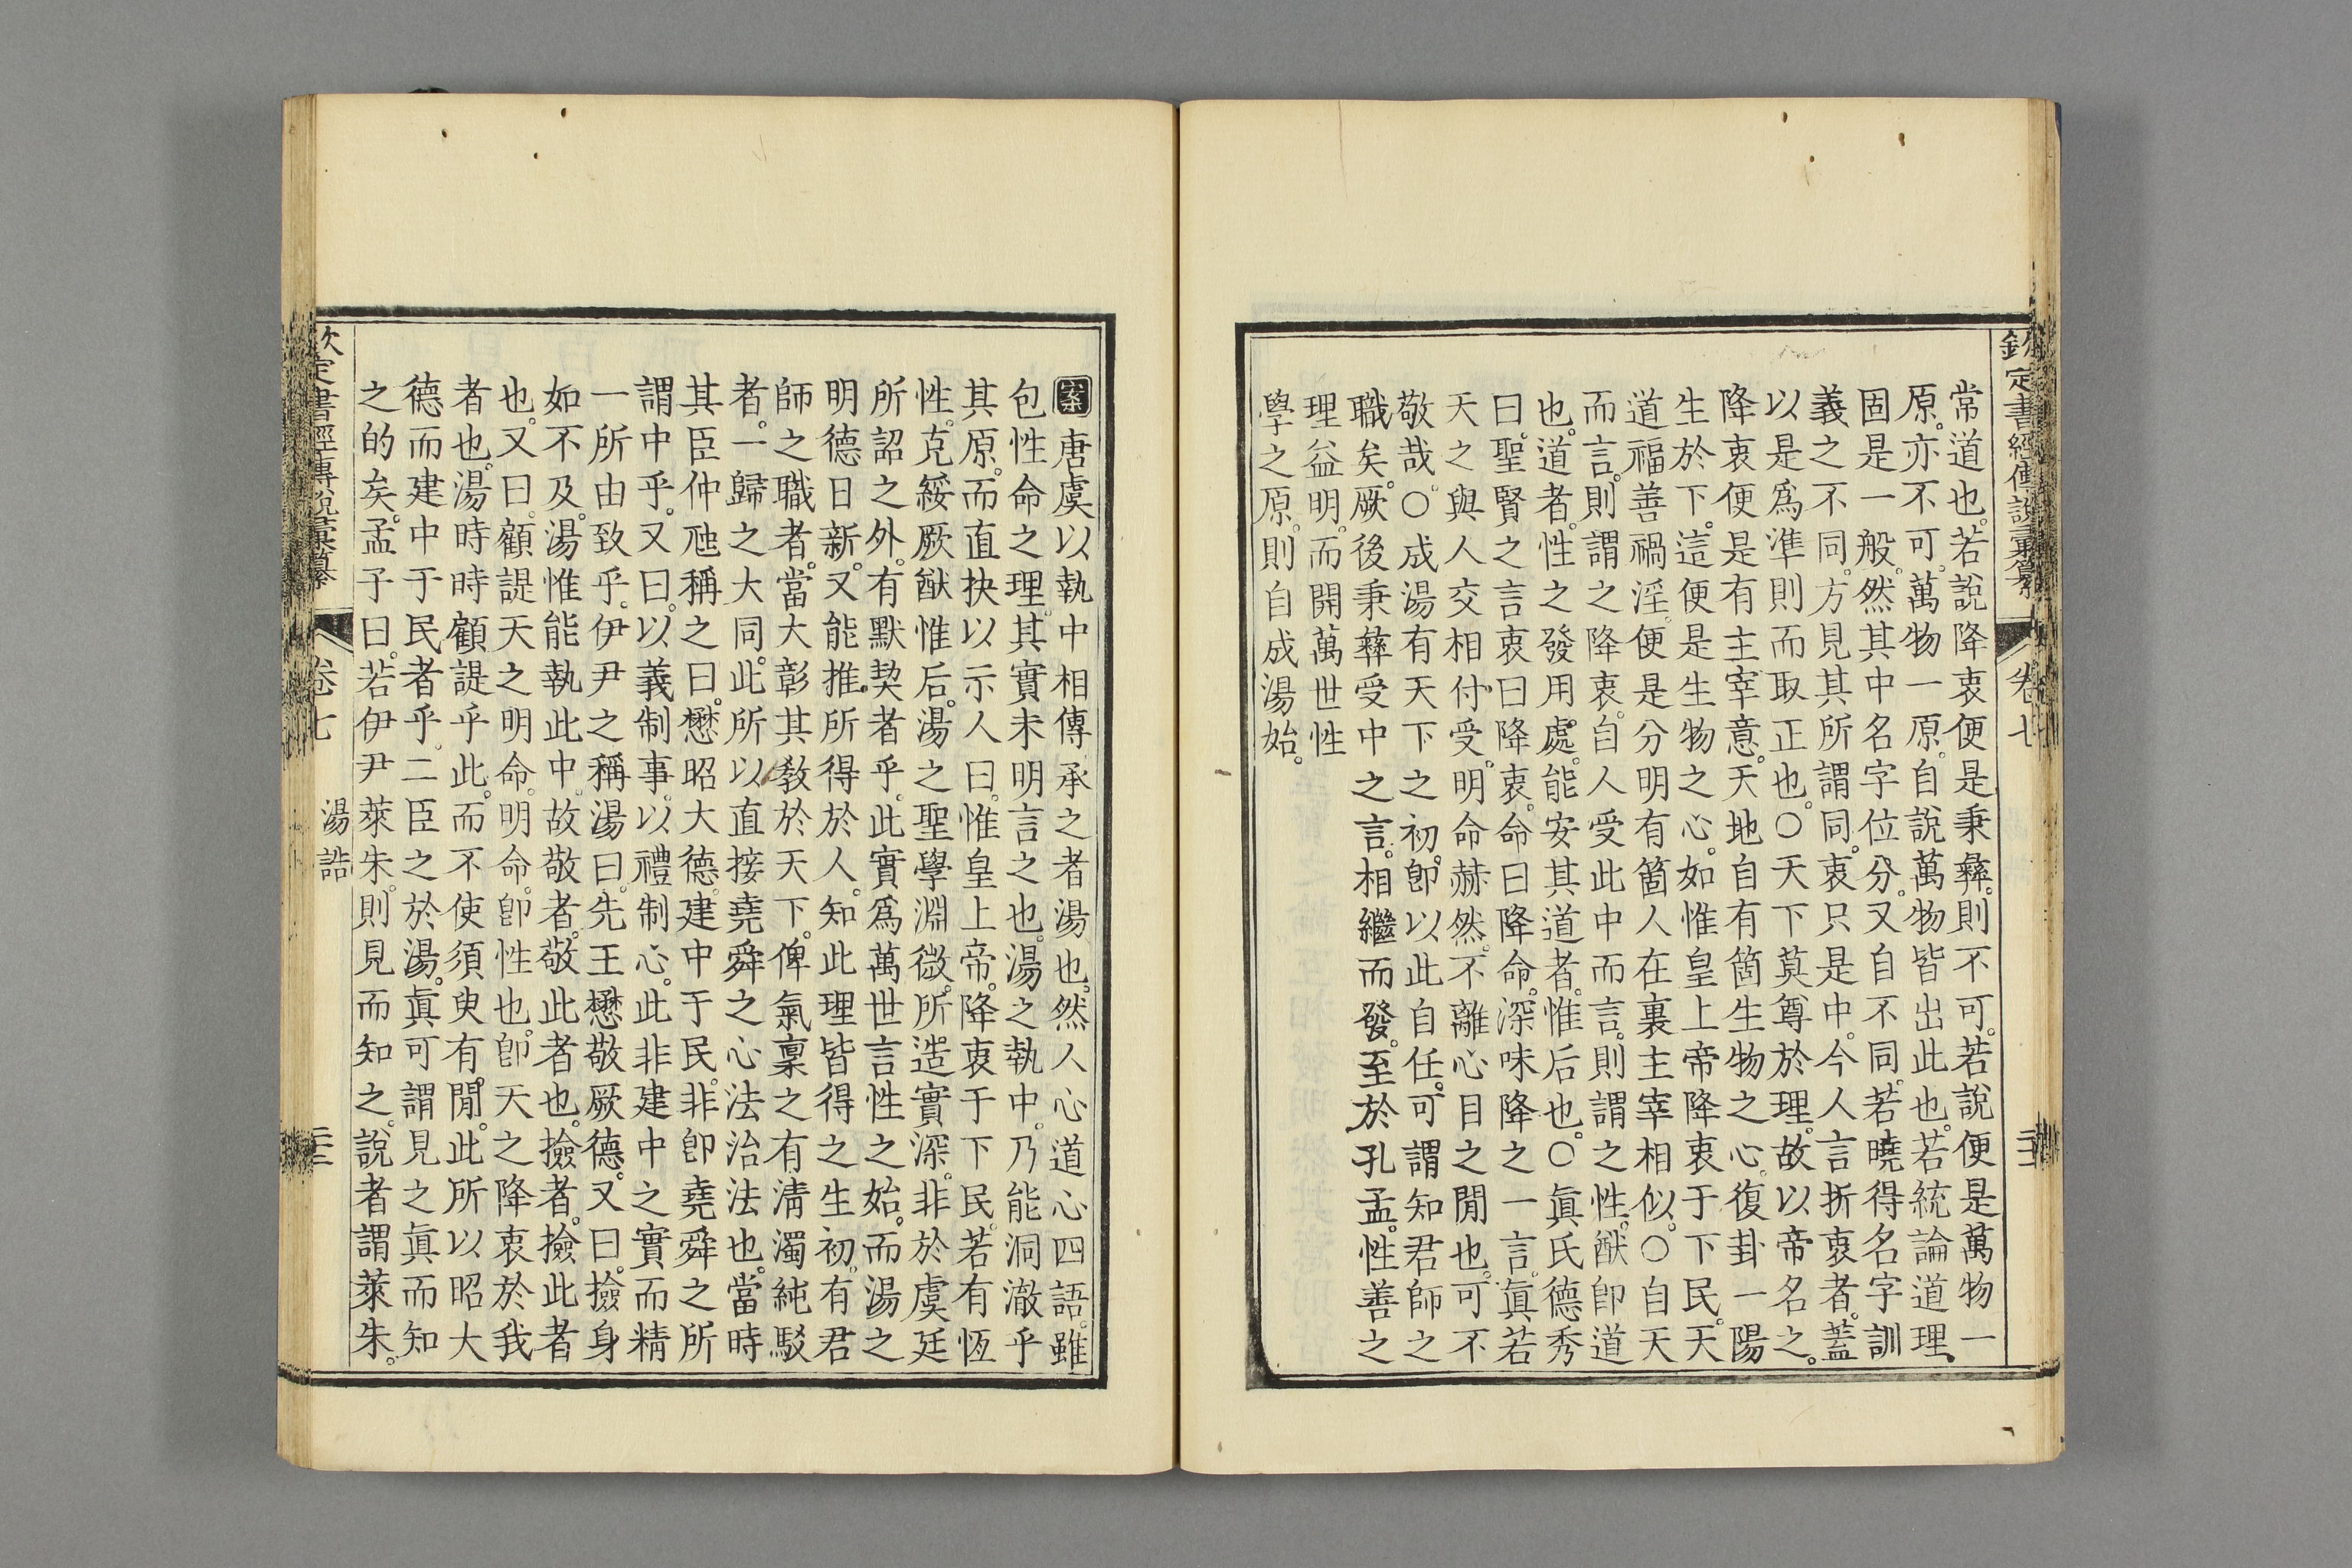 欽定書經傳說彙纂 卷七 二十二
常道也。若說降衷便是秉彝。則不可。若說便是萬物一
原。亦不可。萬物一原。自說萬物皆出此也。若統論道理。
固是一般。然其中名字位分。又自不同。若曉得名字訓
義之不同。方見其所謂同。衷只是中。今人言折衷者。蓋
以是爲準則而取正也。○天下莫尊於理。故以帝名之。
降衷便是有主宰意。天地自有箇生物之心。復卦一陽
生於下。這便是生物之心。如惟皇上帝降衷于下民。天
道福善禍淫。便是分明有箇人在裏主宰相似。○自天
而言。則謂之降衷。自人受此中而言。則謂之性。猷卽道
也。道者。性之發用處。能安其道者。惟后也。○眞氏德秀
曰。聖賢之言衷曰降衷。命曰降命。深味降之一言。眞若
天之與人交相付受。明命赫然。不離心目之閒也。可不
敬哉。○成湯有天下之初。卽以此自任。可謂知君師之
職矣。厥後秉彝受中之言。相繼而發。至於孔孟。性善之
理益明。而開萬世性
學之原。則自成湯始。
案唐虞以執中相傳承之者湯也。然人心道心四語。雖
包性命之理。其實未明言之也。湯之執中。乃能洞澈乎
其原。而直抉以示人曰。惟皇上帝。降衷于下民。若有恆
性。克綏厥猷惟后。湯之聖學淵微。所造實深。非於虞廷
所詔之外。有默契者乎。此實爲萬世言性之始。而湯之
明德日新。又能推所得於人。知此理皆得之生初。有君
師之職者。當大彰其敎於天下。俾氣稟之有淸濁純駁
者。一歸之大同。此所以直接堯舜之心法治法也。當時
其臣仲虺稱之曰。懋昭大德。建中于民。非卽堯舜之所
謂中乎。又曰。以義制事。以禮制心。此非建中之實而精
一所由致乎。伊尹之稱湯曰。先王懋敬厥德。又曰。撿身
如不及。湯惟能執此中。故敬者。敬此者也。撿者。撿此者
也。又曰。顧諟天之明命。明命。卽性也。卽天之降衷於我
者也。湯時時顧諟乎此。而不使須臾有閒。此所以昭大
德而建中于民者乎。二臣之於湯。眞可謂見之眞而知
之的矣。孟子曰。若伊尹萊朱。則見而知之。說者謂萊朱。
欽定書經傳說彙纂 卷七 湯誥 二十三